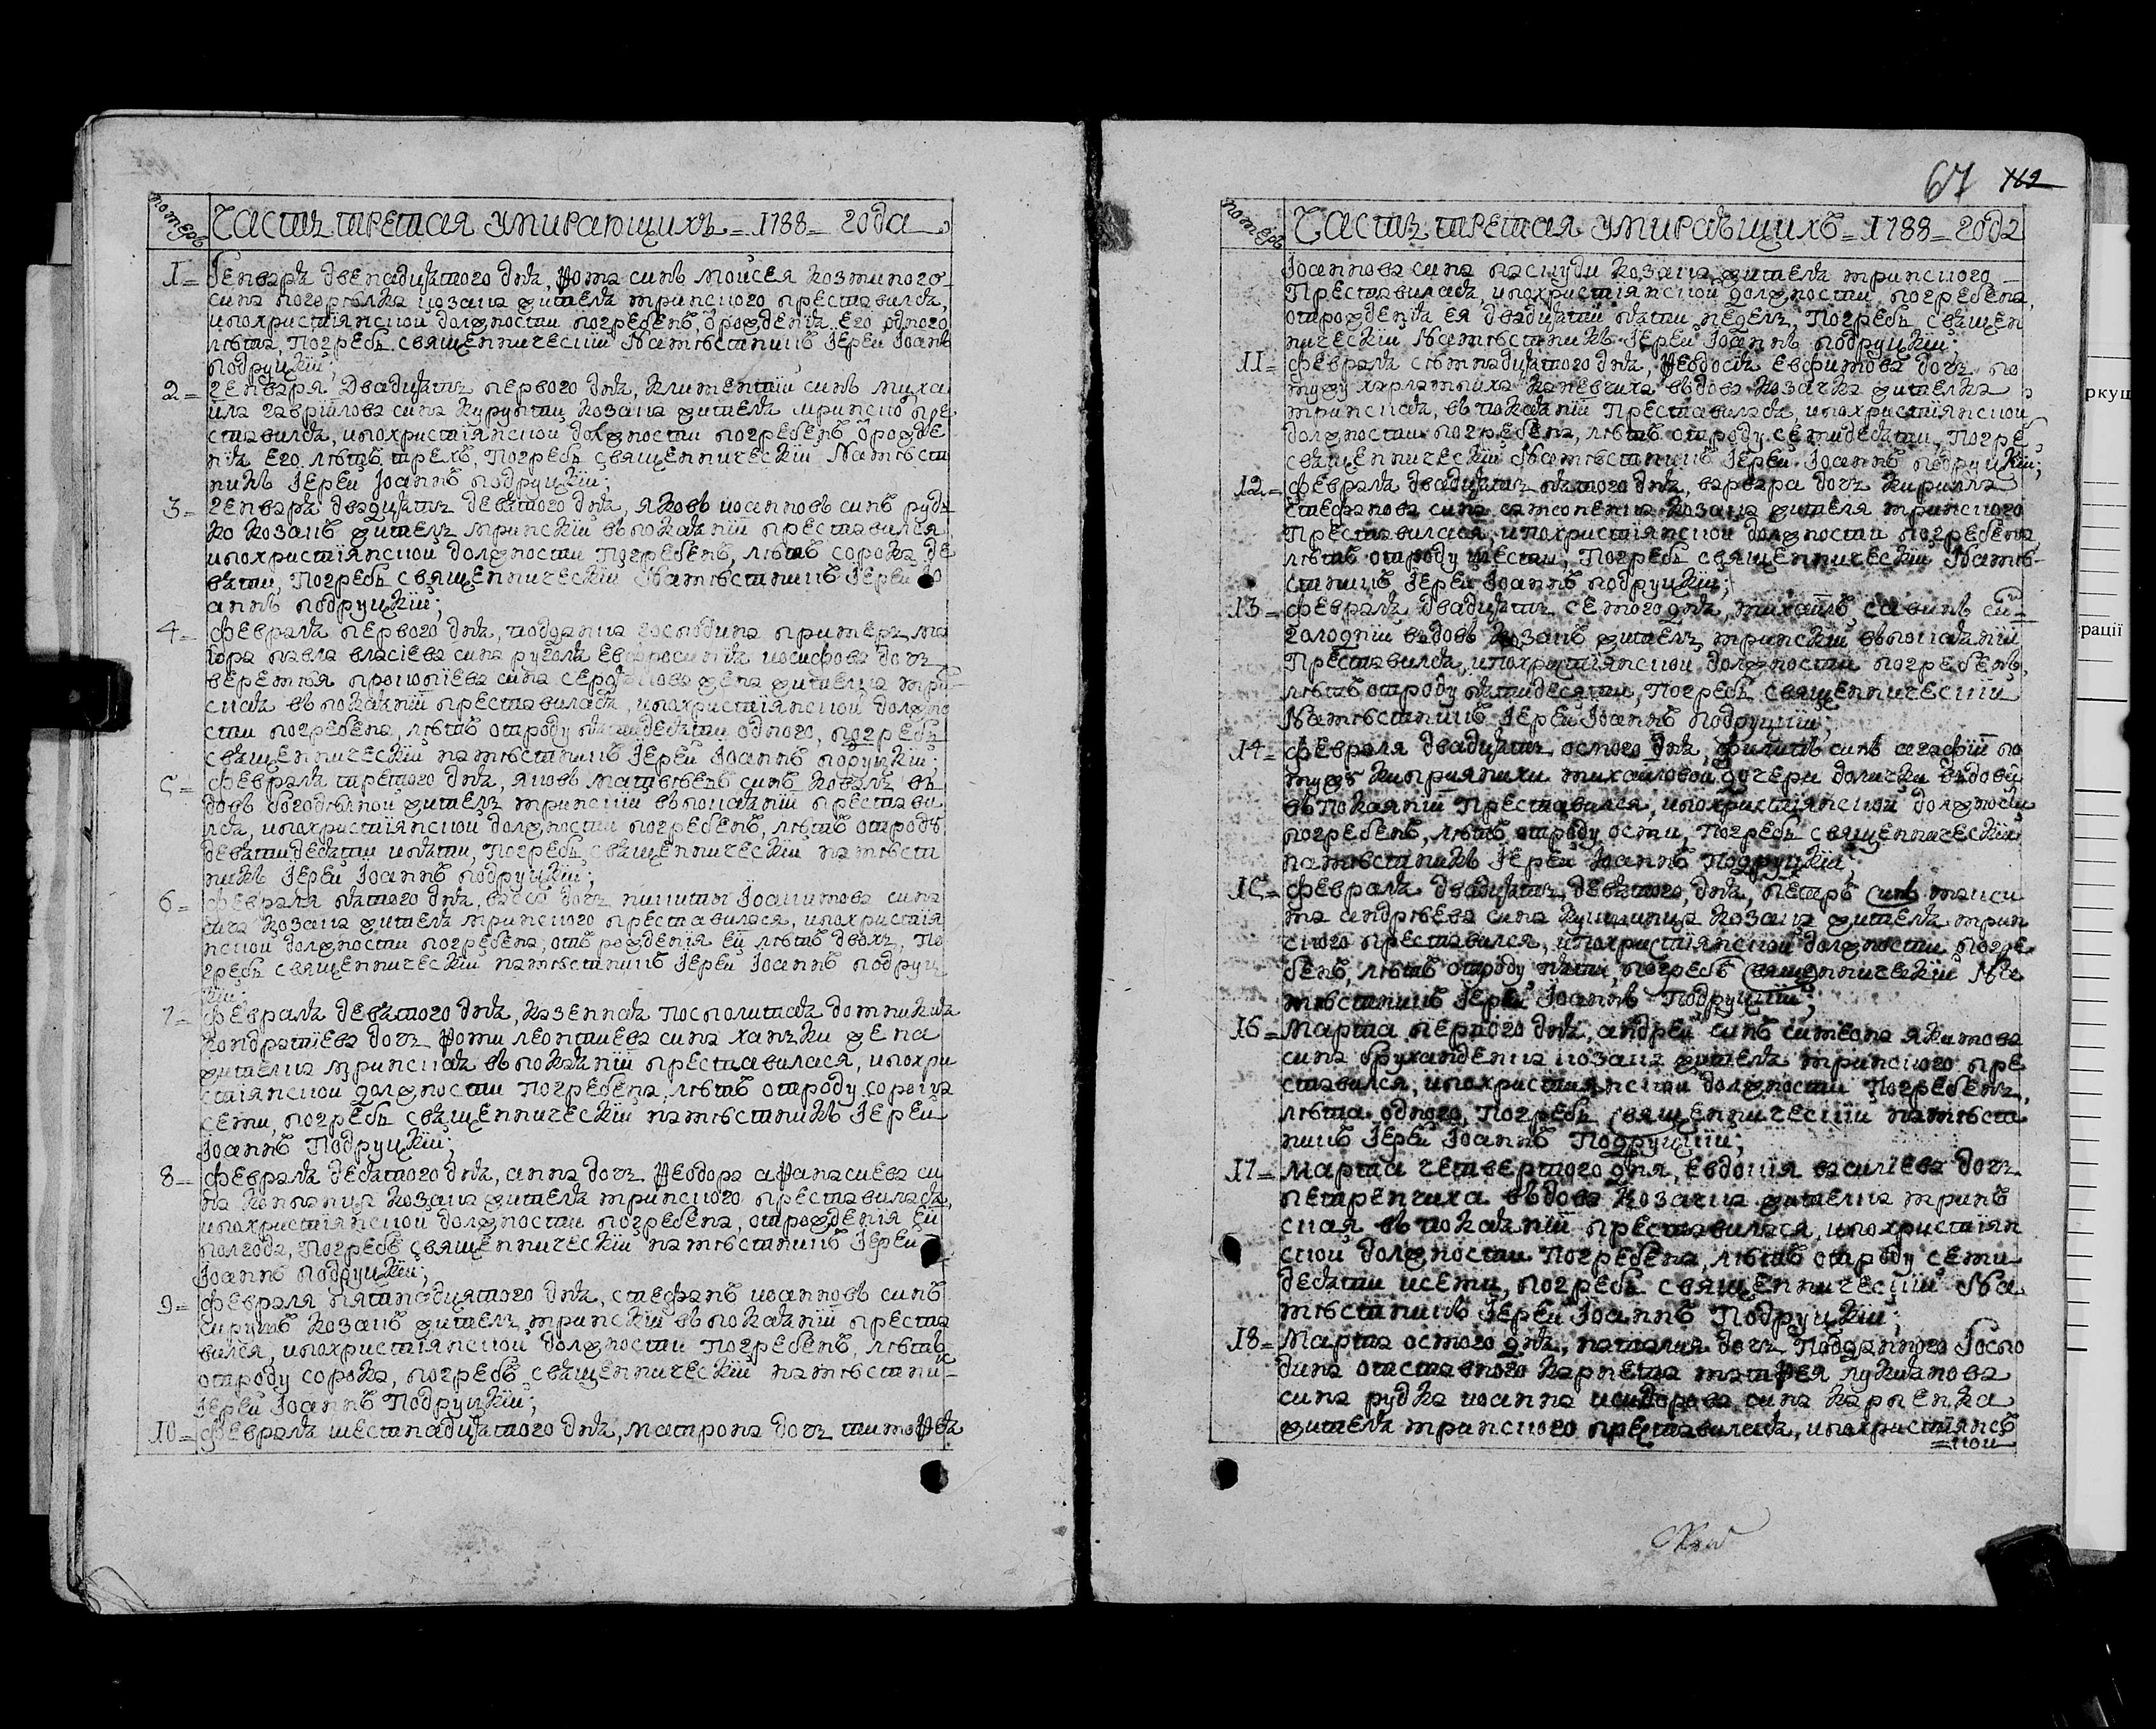 номеръ
Часть третая умирающихъ = 1788 = года
1 = Генваря двенадцятого дня, Ѳома синъ моисея козминого
сина погорѣлка козака жителя мринского преставился,
ипохристіянской должности погребенъ, ѿрожденія его одного
лѣта, Погребь священнический Намѣстникъ Іерей Іоаннъ
подруцкій;
2 = генваря двадцять первого дня, климентий синъ миха
ила гавриілова сина курунти козака жителя мринско пре
ставился, ипохристіянской должности погребенъ ѿрожде
нія его лѣтъ трехъ, Погребь священническій Намѣстн
никъ Іерей Іоаннъ подруцкій;
3 = генваря двадцять девятого дня, яковъ иоанновъ синъ рудь
ко козакъ жителъ мринскій въ покаяніи преставился
ипохристіянской должности погребенъ, лѣтъ сорока де
вяти, Погребь священническій Намѣстникъ Іерей Іо
аннъ подруцкій;
4 = февраля первого дня, поддана господина примеръ ма
іора павла власіева сина ругала евфросинія иосифова дочъ
веремія прокопіева сина жена жителка мри
нская въ покаяніи преставилася, ипохристіянской должно
сти погребена, лѣтъ отроду пятидесяти одного, погребь
священническій намѣстникъ Іерей Іоаннъ подруцкій;
5 = февраля третого дня, яковъ матвѣевъ синъ коваль въ
довъ богоделной жителъ мринскій въ покаяніи престави
лся, ипохристіянской должности погребенъ, лѣтъ отроду
девятидесяти ипяти, Погребь священническій намѣстн
никъ Іерей Іоаннъ подруцкій;
6 = февраля пятого дня, васса дочъ никити Іоакимова сина
козака жителя мринского преставилася, ипохристія
нской должности погребена, отъ рожденія ей лѣтъ двохъ, По
гребь священническій намѣстникъ Іерей Іоаннъ подруц
кій;
7 = февраля девятого дня, казенная посполитая домникия
кондратіева дочъ Ѳоми леонтиева сина ханъки жена
жителка мринская въ покаяніи преставилася, ипохри
стіянской должности Погребена, лѣтъ отроду сорока
семи, погребь священническій намѣстникъ Іерей
Іоаннъ Подруцкій;
8 = февраля десятого дня, анна дочъ Ѳеодора аѲанасиева си
на козака жителя мринского преставилася,
ипохристіянской должности погребена, отрожденія ей
полгода, Погребь священническій намѣстникъ Іерей
Іоаннъ подруцкій;
9 = февраля пятнадцятого дня, стефанъ иоанновъ синъ
козакъ жителъ мринскій въ покаяніи преста
вился, ипохристіянской должности Погребенъ, лѣтъ
отроду сорока, погребь священническій намѣстникъ
Іерей Іоаннъ Подруцкій;
10 = февраля шестнадцятого дня, матрона дочъ тимоѲея
67 112
номеръ
Часть третая умираѣщихъ = 1788 = года
Іоаннова сина козака жителя мринского
Преставилася, ипохристіянской должности погребена,
отрожденія ея двадцяти пяти неделъ, Погребь священ
ническій Намѣстникъ Іерей Іоаннъ подруцкій;
11 = февраля семнадцятого дня, Ѳеодосія евфимова дочъ по
мужу харлампиха каневчиха въдова козачка жителка
мринская, въ покаяніи Преставилася, ипохристіянской
должности погребена, лѣтъ отроду семидесяти, Погребь
священническій Намѣстникъ Іерей Іоаннъ подруцкій;
12 = февраля двадцять пятого дня, варвара дочъ кирилла
стефанова сина самсоненка козака жителя мринского
Преставилася, ипохристіянской должности погребена
лѣтъ отроду шести, Погребь священническій Намѣ-
стникъ Іерей Іоаннъ подруцкій;
13 = февраля двадцять семого дня, михаилъ савинъ синъ
голодній въдовъ козакъ жителъ мринскій въ покаяніи
Преставился, ипохристіянской должности погребенъ,
лѣтъ отроду пятидесяти, Погребь священническій
Намѣстникъ Іерей Іоаннъ подруцкій;
14 = февраля двадцять осмого дня, филипъ синъ агафіи по
мужѣ киприянихи михаиловой дочери долички въдови
въ покаяніи Преставился, ипохристіянской должности
погребенъ, лѣтъ отроду осми, Погребь священническій
намѣстникъ Іерей Іоаннъ Подруцкій;
15 = февраля двадцять девятого, дня, петръ синъ макси
ма андрѣева сина козака жителя мрин
ского преставился, ипохристіянской должности погре
бенъ, лѣтъ отроду пяти, погребъ священническій На
мѣстникъ Іерей Іоаннъ Подруцкій;
16 = Марта першого дня, андрей синъ симеона якимова
сина бруханденка козака жителя мринского пре
ставился, ипохристиянской должности Погребенъ,
лѣта одного, Погребь священническій намѣст
никъ Іерей Іоаннъ Подруцкій;
17 = Марта четвертого дня, евдокия василіева дочъ
петренчиха въдова козачка жителка мринъ
ская въ покаяніи преставилася, ипохристіян
ской должности Погребена, лѣтъ отроду семи
десяти исеми, погребь священническій На
мѣстникъ Іерей Іоаннъ Подруцкій;
18 = Марта осмого дня, наталия дочъ Подданного Госпо
дина отставного карнета матѲея лукиянова
сина рудка иоанна исидорова сина карпенка
жителя мринского преставилася, ипохристіянсъ
=кой